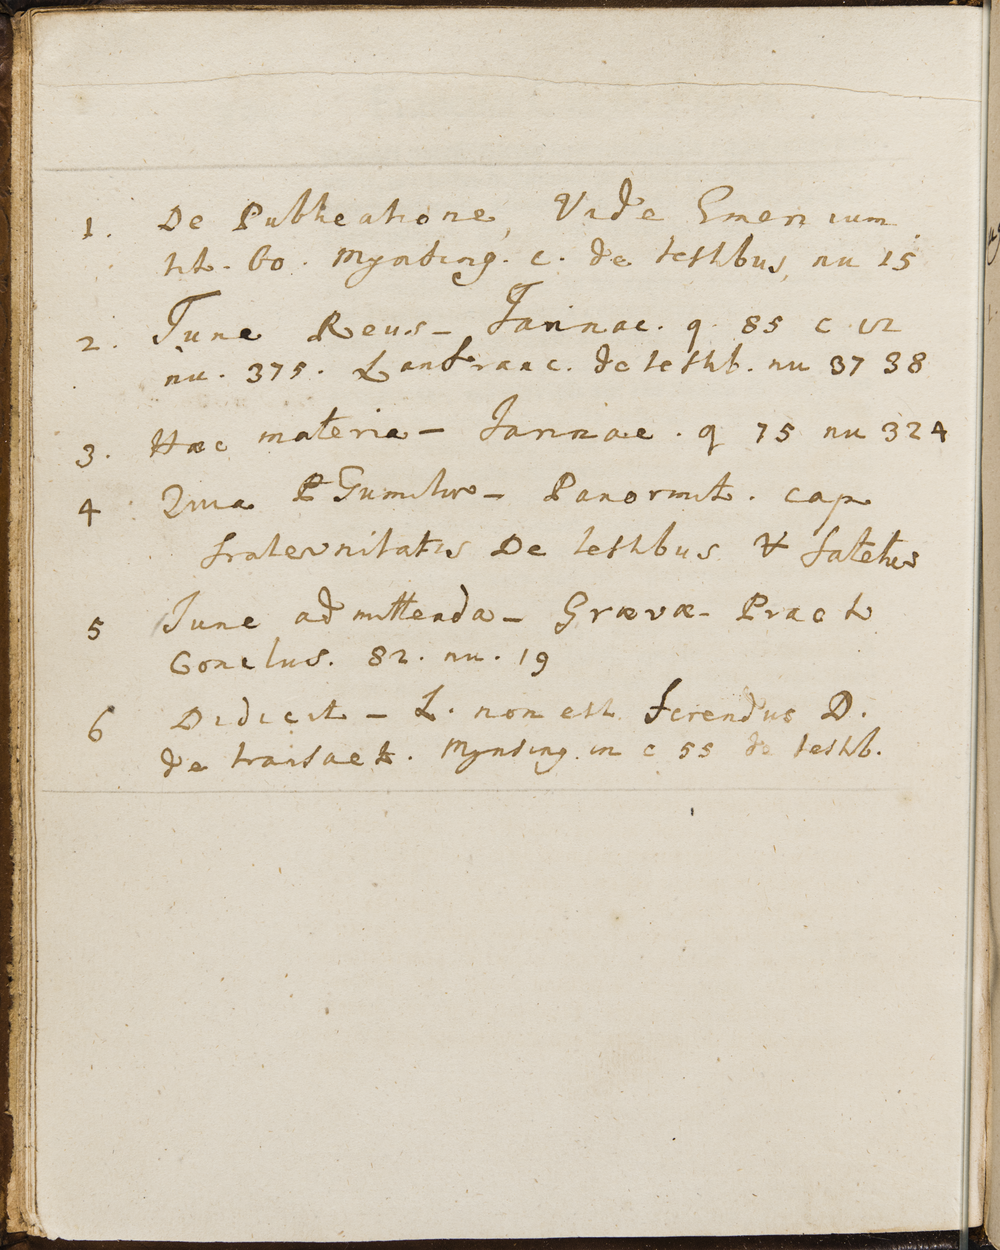 1. De Publicatione, Vide Emericum
tit. 60. Mynsing. c. de testibus, nu 15
2. Tunc Reus - Farinac. q. 85 c 12
nu. 375. Lanfranc. de testib. nu 37 38
3. Hac materia - Farinac. q 75 nu 324
4 Quia - Panormit. cap
fraternitatis De testibus &
5 Tunc admittenda - Grævæ - Pract
Conclus. 82. nu. 19
6 Didicit - L. non est ferendus D.
de transact. Mynsing. in c 55 de testib.